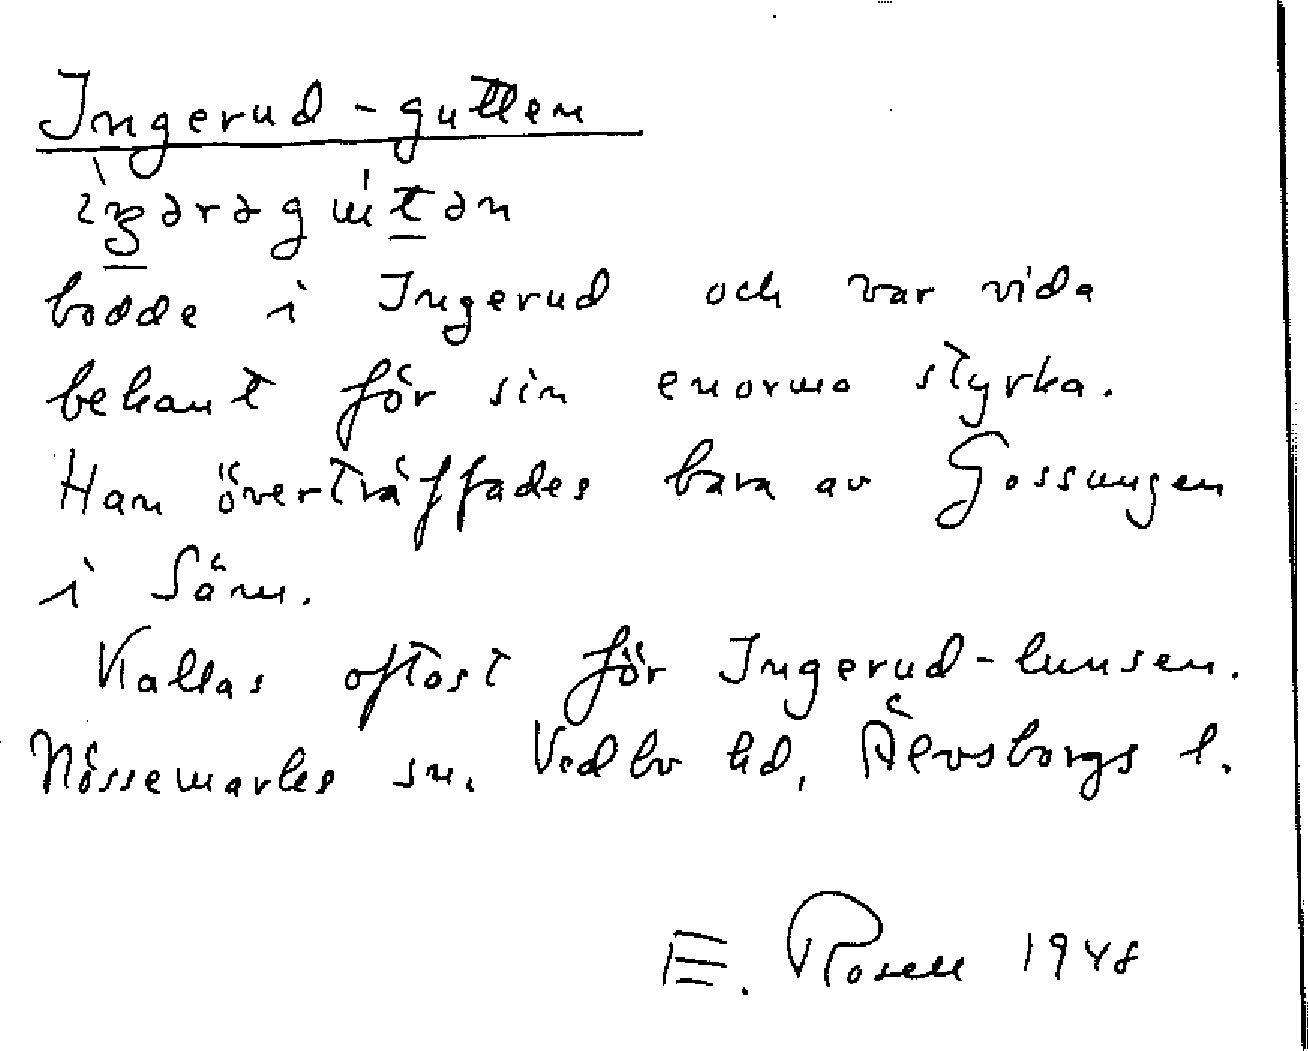 Ingerud-gutten
bodde i Ingerud och var vida
bekant för sin enorma styrka.
Han överträffades bara av Gossungen
i Särm.
Kallas oftast för Ingerud-lunsen.
Nössemarks sn. Vedbo hd, Älvsborgs l.
E. Rosell 1948